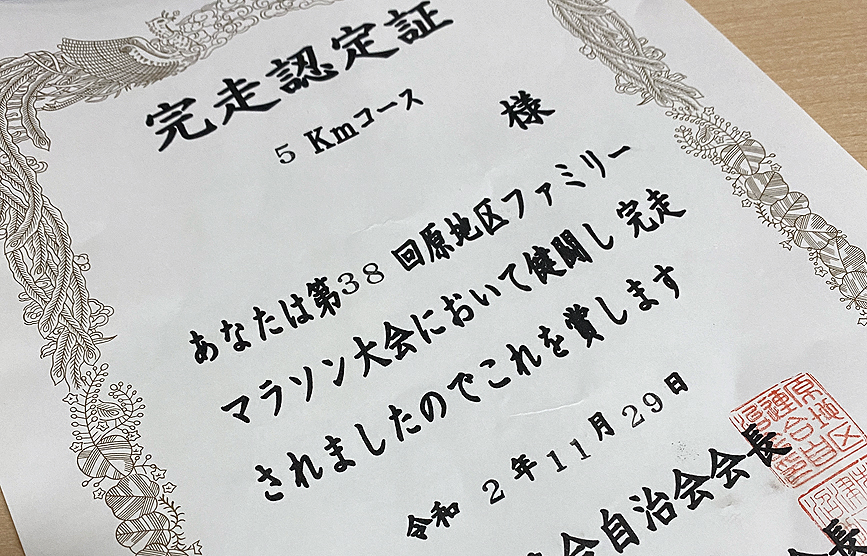 完走認定証
5 Kmコース
様
あなたは第38 回原地区ファミリー
マラソン大会において健闘し 完走
されましたのでこれを賞します
令和 2 年 11 月 29 日
会自治会会長
原地区
長